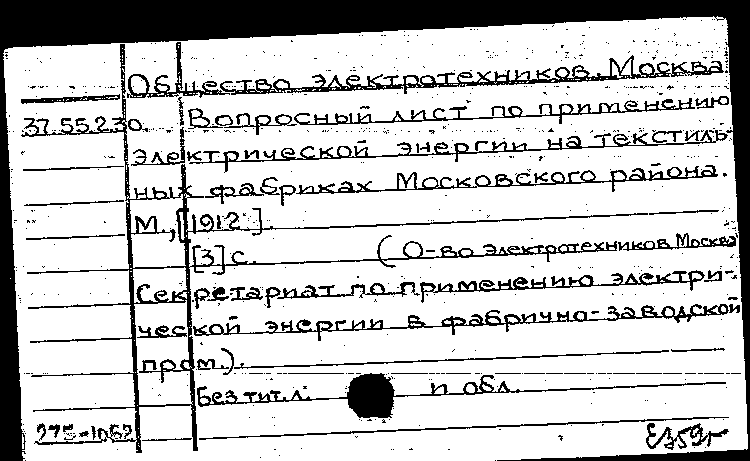 Общество электротехников. Москва
37.55.230. Вопросный лист по применению
электрической энергии на текстиль-
ных фабриках Московского района.
М., [1912].
[3] с. (О-во электротехников Москва
Секретариат по применению электри-
ческой энергии в фабрично-заводской
пром.).
Без тит. л. и обл.
275-1062
Е359г